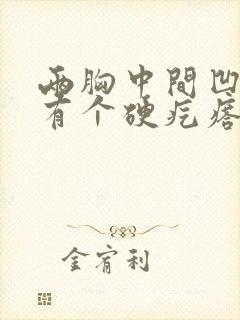 兩胸中間凹
有个硬疙瘩
金宥利